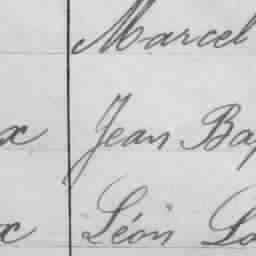 Marcel
x Jean Bap
x Léon La